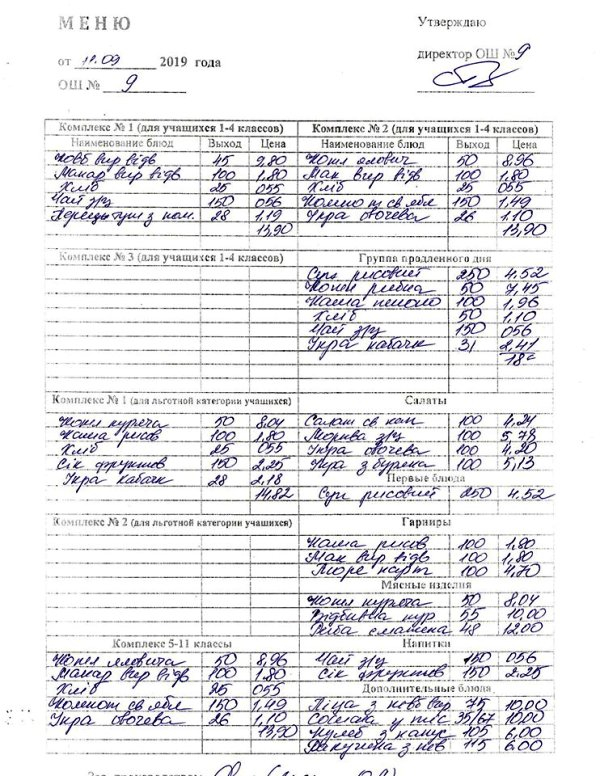 МЕНЮ
Утверждаю
от 11.09 2019 года
директор ОШ №9
ОШ № 9
Комплекс № 1 (для учащихся 1-4 классов) Комплекс № 2 (для учащихся 1-4 классов)
Наименование блюд Выход Цена Наименование блюд Выход Цена
Ковб вир відв 45 9,80 Котл ялович 50 8,96
Макар вир відв 100 1,80 Мак вир відв 100 1,80
Хліб 25 055 Хліб 25 055
Чай з/ц 150 056 Компот св ябл 150 1,49
з 28 1,19 Ікра овочева 26 1.10
13,90 13,90
Комплекс № 3 (для учащихся 1-4 классов) Группа продленного дня
Суп рисовий 250 4.52
Котл рибна 50 7,45
Каша 100 1,96
Хліб 50 1,10
Чай з/ц 150 056
Ікра кабачк 31 2,41
18
Комплекс № 1 (для льготной категории учащихся) Салаты
Котл куряча 50 8,04 Салат св кап 100 4,24
Каша рисов 100 1,80 Морква з/ц 100 5,78
Хліб 25 055 Ікра овочева 100 4,20
Сік фруктов 150 2,25 Ікра з буряка 100 5,13
Ікра кабачк 28 2,18 Первые блюда
14,82 Суп рисовий 250 4,52
Комплекс № 2 (для льготной категории учащихся) Гарниры
Каша рисов 100 1,80
Мак вир відв 100 1,80
Пюре карт 100 4,70
Мясные изделия
Котл куряча 50 8,04
Відбивна кур 55 10,00
Риба смажена 48 12.00
Комплекс 5-11 классы Напитки
Котл ялович 50 8,96 Чай з/ц 150 056
Макар вир відв 100 1,80 Сік фруктов 150 2.25
Хліб 25 055 Дополнительные блюда
Компот св ябл 150 1,49 Піца з ковб вир 75 10,00
Ікра овочева 26 1,10 Сосиска у тіс 35/67 10,00
13,90 з капус 105 6,00
з 115 6,00